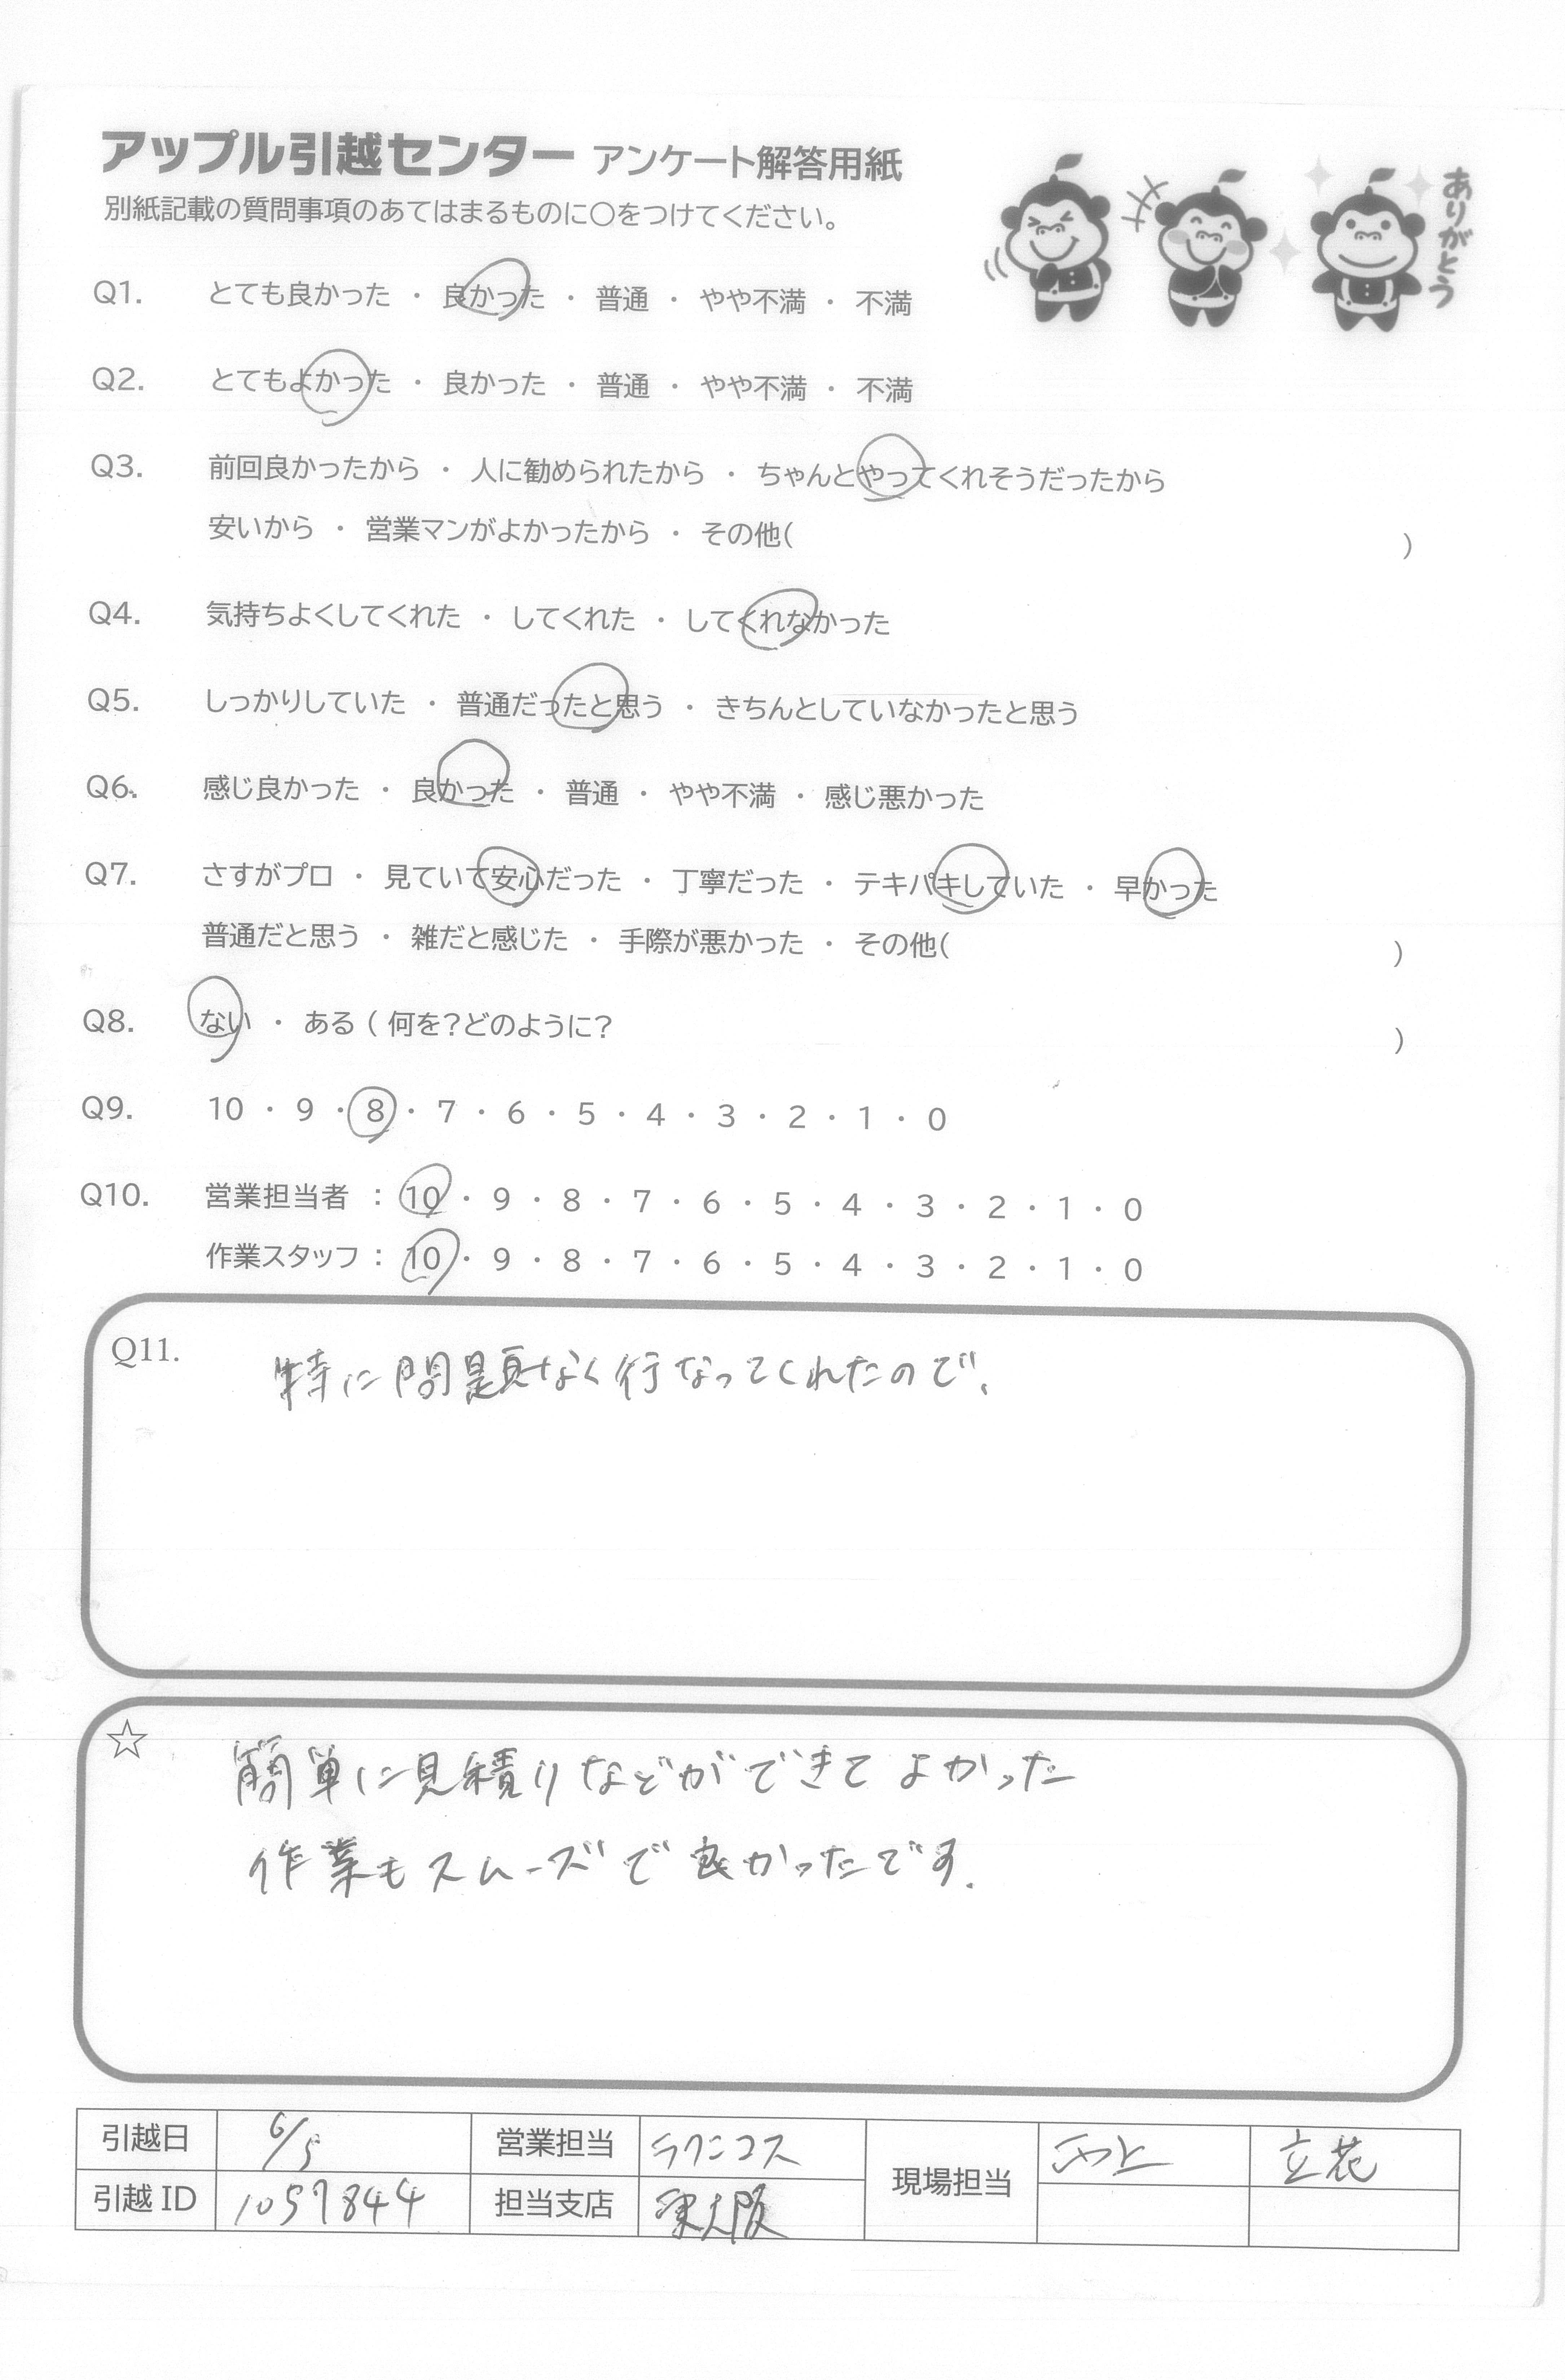 アップル引越センター アンケート解答用紙
別紙記載の質問事項のあてはまるものに○をつけてください。
ありがとう
Q1. とても良かった ・ 良かった ・ 普通 ・ やや不満 ・ 不満
Q2. とてもよかった ・ 良かった ・ 普通 ・ やや不満 ・ 不満
Q3. 前回良かったから ・ 人に勧められたから ・ ちゃんとやってくれそうだったから
安いから ・ 営業マンがよかったから ・ その他( )
Q4. 気持ちよくしてくれた ・ してくれた ・ してくれなかった
Q5. しっかりしていた ・ 普通だったと思う ・ きちんとしていなかったと思う
Q6. 感じ良かった ・ 良かった ・ 普通 ・ やや不満 ・ 感じ悪かった
Q7. さすがプロ ・ 見ていて安心だった ・ 丁寧だった ・ テキパキしていた ・ 早かった
普通だと思う ・ 雑だと感じた ・ 手際が悪かった ・ その他( )
Q8. ない ・ ある ( 何を?どのように? )
Q9. 10 ・ 9 ・ 8 ・ 7 ・ 6 ・ 5 ・ 4 ・ 3 ・ 2 ・ 1 ・ 0
Q10. 営業担当者 : 10 ・ 9 ・ 8 ・ 7 ・ 6 ・ 5 ・ 4 ・ 3 ・ 2 ・ 1 ・ 0
作業スタッフ : 10 ・ 9 ・ 8 ・ 7 ・ 6 ・ 5 ・ 4 ・ 3 ・ 2 ・ 1 ・ 0
Q11. 特に問題なく行なってくれたので、
☆ 簡単に見積りなどができてよかった
作業もスムーズで良かったです.
引越日 6/5 営業担当 ラクニコス 現場担当 立花
引越ID 1057844 担当支店 東大阪